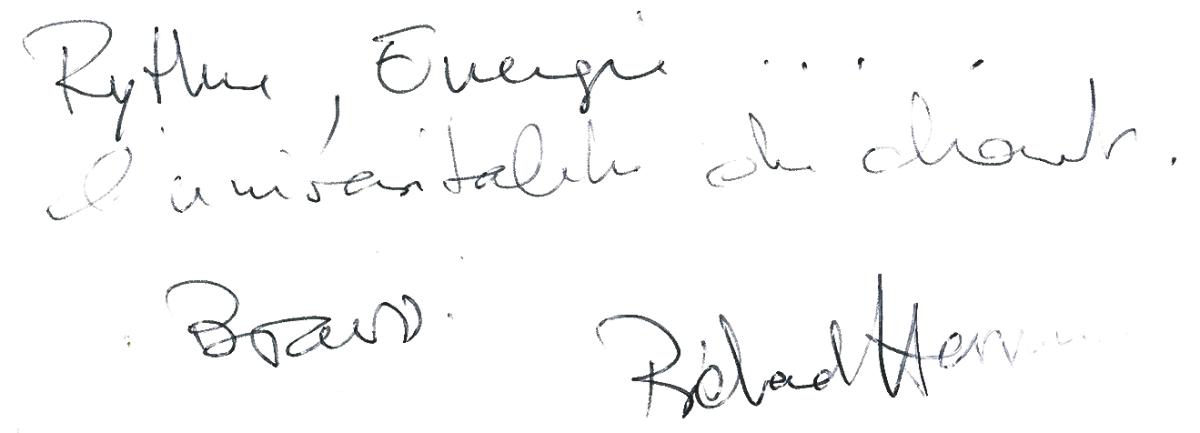 Rythme, Energie ....
l'universalité du chant.
Bravo.
Richard